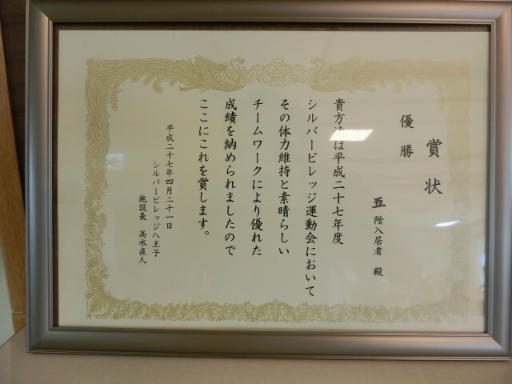 賞状
優勝
五階入居者 殿
貴方達は平成二十七年度
シルバービレッジ運動会において
その体力維持と素晴らしい
チームワークにより優れた
成績を納められましたので
ここにこれを賞します。
平成二十七年四月二十一日
シルバービレッジ八王子
施設長 高水直人